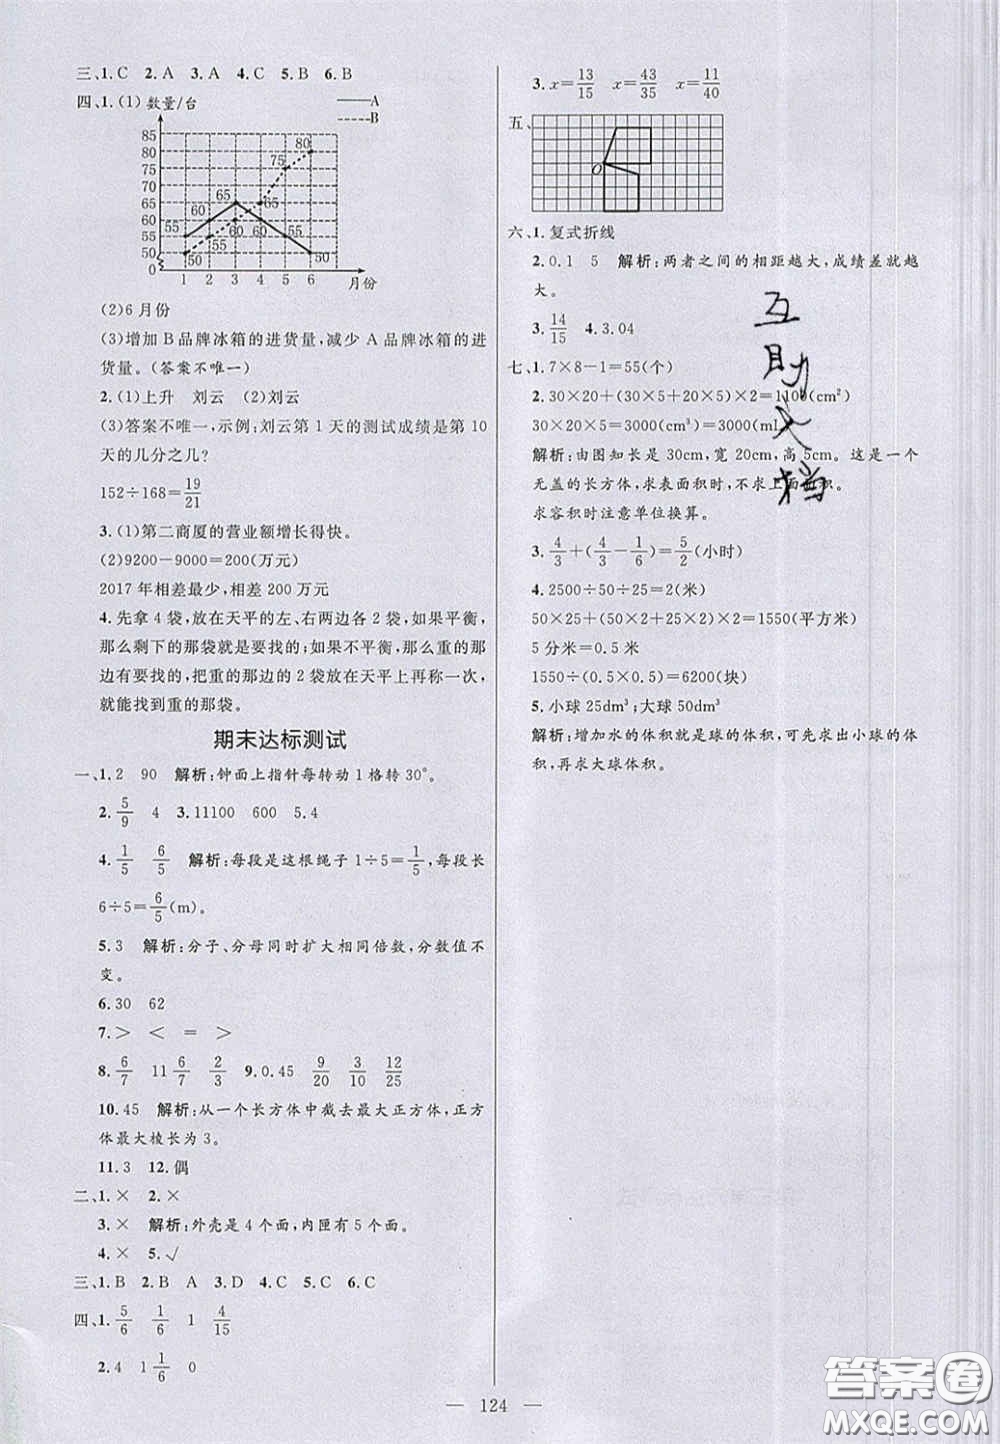 三、1.C 2.A 3.A 4.C 5.B 6.B
四、1.(1) 数量/台
——A
-----B
85
80
75
70
65
60
55
50
0
55
60
65
60
55
50
50
55
60
65
75
80
1 2 3 4 5 6 月份
(2)6月份
(3)增加 B 品牌冰箱的进货量,减少 A 品牌冰箱的进
货量。(答案不唯一)
2.(1)上升 刘云 (2)刘云
(3)答案不唯一,示例:刘云第 1 天的测试成绩是第 10
天的几分之几?
152÷168=19/21
3.(1)第二商厦的营业额增长得快。
(2)9200-9000=200(万元)
2017 年相差最少,相差 200 万元
4.先拿 4 袋,放在天平的左、右两边各 2 袋,如果平衡,
那么剩下的那袋就是要找的;如果不平衡,那么重的那
边有要找的,把重的那边的 2 袋放在天平上再称一次,
就能找到重的那袋。
期末达标测试
一、1.2 90 解析:钟面上指针每转动 1 格转 30°。
2.5/9 4 3.11100 600 5.4
4.1/5 6/5 解析:每段是这根绳子 1÷5=1/5,每段长
6÷5=6/5(m)。
5.3 解析:分子、分母同时扩大相同倍数,分数值不
变。
6.30 62
7.> < = >
8.6/7 11 6/7 2/3 9.0.45 9/20 3/10 12/25
10.45 解析:从一个长方体中截去最大正方体,正方
体最大棱长为 3。
11.3 12.偶
二、1.× 2.×
3.× 解析:外壳是 4 个面,内匣有 5 个面。
4.× 5.√
三、1.B 2.B A 3.D 4.C 5.C 6.C
四、1.5/6 1/6 1 4/15
2.4 1 1/6 0
3.x=13/15 x=43/35 x=11/40
五、
O
六、1.复式折线
2.0.1 5 解析:两者之间的相距越大,成绩差就越
大。
3.14/15 4.3.04
七、1.7×8-1=55(个)
2.30×20+(30×5+20×5)×2=1100(cm²)
30×20×5=3000(cm³)=3000(mL)
解析:由图知长是 30cm,宽 20cm,高 5cm。这是一个
无盖的长方体,求表面积时,不求上面面积。
求容积时注意单位换算。
3.3/4+(3/4-1/6)=5/2(小时)
4.2500÷50÷25=2(米)
50×25+(50×2+25×2)×2=1550(平方米)
5 分米=0.5 米
1550÷(0.5×0.5)=6200(块)
5.小球 25dm³;大球 50dm³
解析:增加水的体积就是球的体积,可先求出小球的体
积,再求大球体积。
互
助
文
档
124
答案圈
MXQE.COM